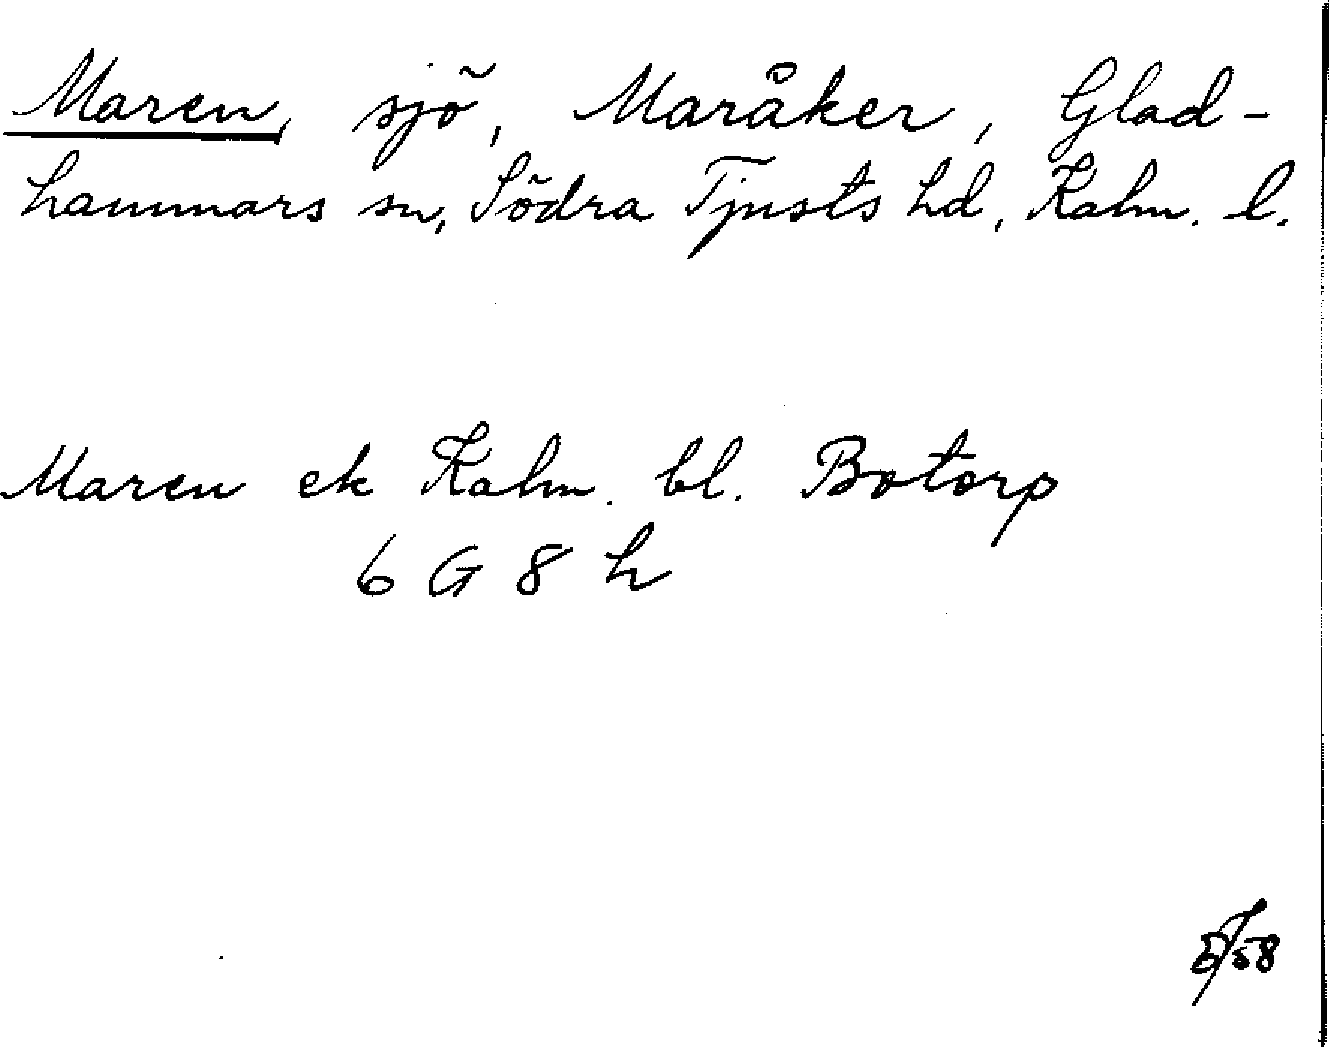 Maren, sjö, Maråker, Glad-
hammars sn, Södra Tjusts hd, Kalm. l.
Maren ek Kalm. bl. Botorp
6 G 8 h